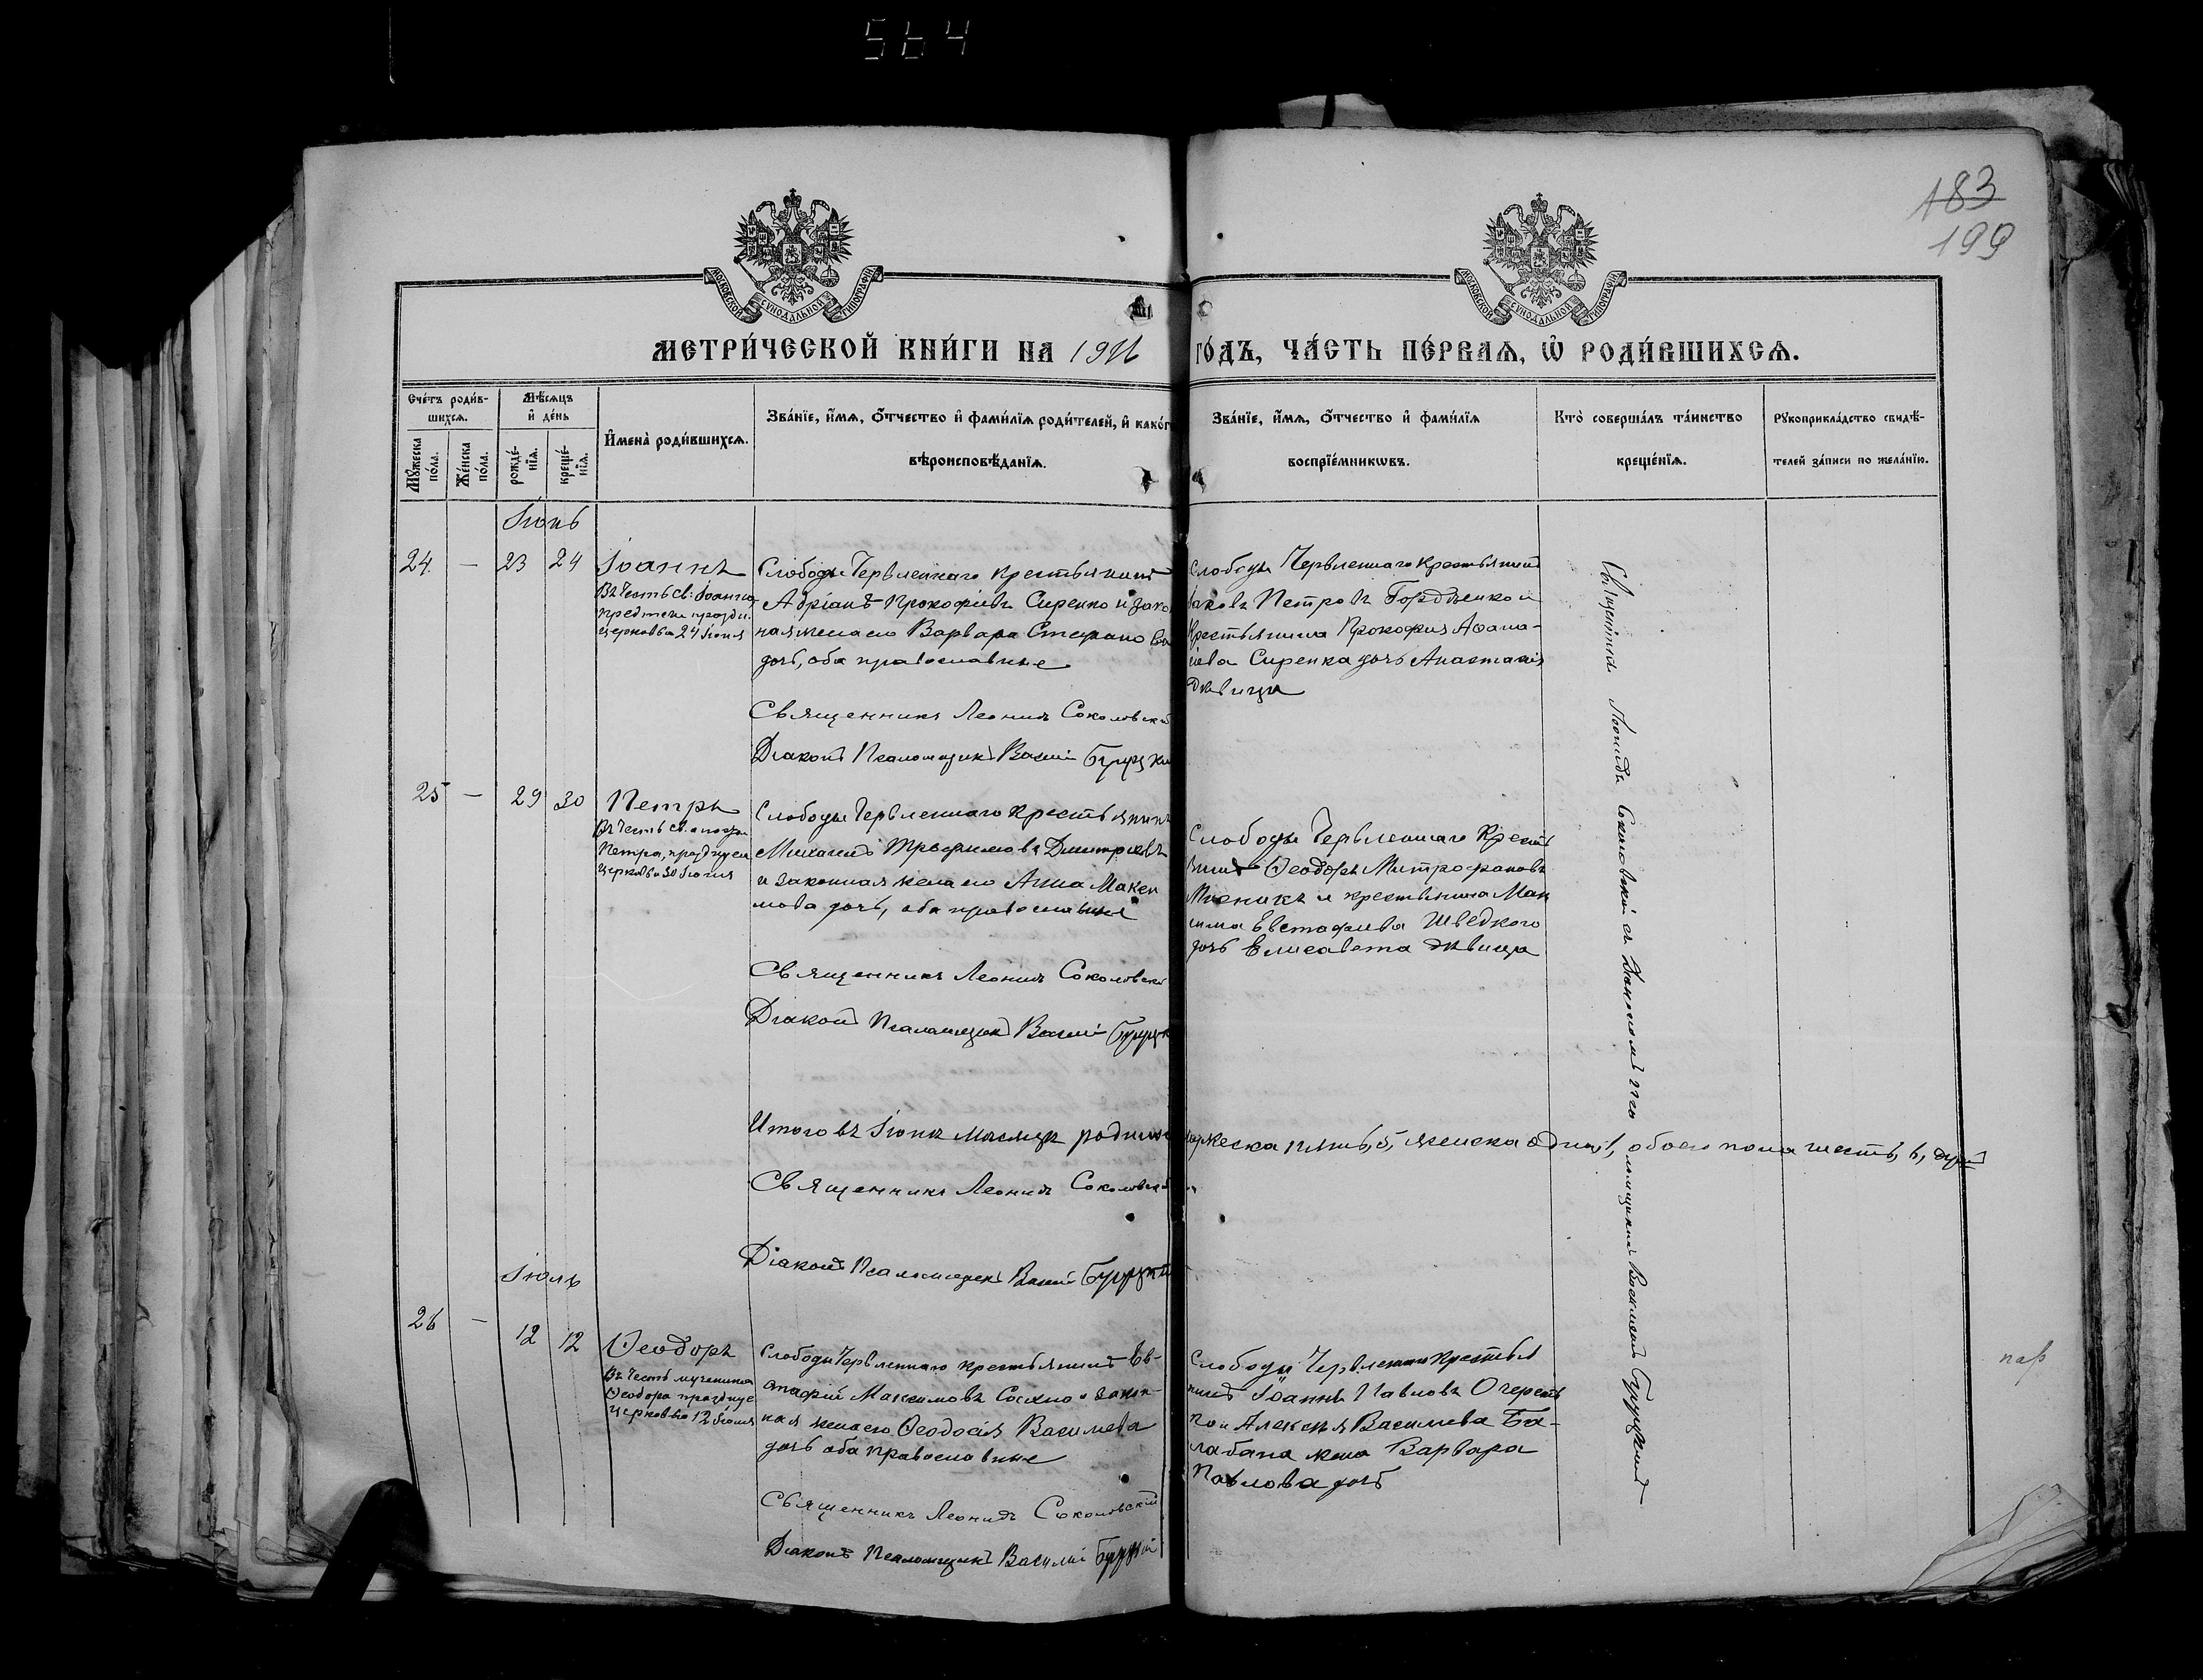 564
183
199
МОСКОВСКОЙ СУНОДАЛЬНОЙ ТИПОГРАФІИ
МОСКОВСКОЙ СУНОДАЛЬНОЙ ТИПОГРАФІИ
МЕТРИ́ЧЕСКОЙ КНИ́ГИ НА 1911 ГО́ДЪ, ЧА́СТЬ ПЕ́РВАЯ, Ѡ РОДИ́ВШИХСѦ.
Сче́тъ роди́в-
шихсѧ.
Мꙋжеска по́ла.
Же́нска по́ла.
Мѣ́сѧцъ
и҆ де́нь
рожде́-
нїѧ.
креще́-
нїѧ.
И҆мена̀ роди́вшихсѧ.
Зва́нїе, и҆́мѧ, ѻ҆́тчество и҆ фами́лїѧ роди́телей, и҆ како́г
вѣроисповѣ́данїѧ.
Зва́нїе, и҆́мѧ, ѻ҆́тчество и҆ фами́лїѧ
воспрїе́мникѡвъ.
Кто̀ соверша́лъ та́инство
креще́нїѧ.
Рꙋкоприкла́дство свидѣ́-
телей за́писи по жела́нїю.
Іюнь
24. — 23 24 Іоаннъ
Въ честь св: Іоанна
Предтечи праздн.
церковью 24 Іюня
Слободы Червленнаго крестьянинъ
Адріанъ Прокофіевъ Сиренко и зако
ная жена его Варвара Стефанова
дочь, оба православные
Священникъ Леонидъ Соколовскій
Діаконъ Псаломщикъ Васил
Слободы Червленнаго крестьянинъ
Іаковъ Петровъ Гордѣенко и
крестьянина Прокофія Аѳана-
сіева Сиренка дочь Анастасія
дѣвица
25 — 29 30 Петръ
Въ честь св. апостола
Петра, празднуем
церковью 30 Іюня
Слободы Червленнаго крестьянинъ
Михаилъ Трофимовъ Дмитріевъ
и законная жена его Анна Макси
мова дочь, оба православные
Священникъ Леонидъ Соколовскі
Діаконъ Псаломщикъ Васил
Слободы Червленнаго Кресть
янинъ Ѳеодоръ Митрофановъ
и крестьянина Мак
сима Евстафіева Шведкого
дочь Елисавета дѣвица
Итого въ Іюнѣ мѣсяцѣ родилось мужеска пять, 5, женска одна, 1, обоего пола шесть, 6, душъ
Священникъ Леонидъ Соколовскій
Діаконъ Псаломщикъ Васил
Іюль
26 — 12 12 Ѳеодоръ
Въ честь мученика
Ѳеодора празднуе
церковью 12 Іюля
Слободы Червленнаго крестьянинъ Ев-
стафій Максимовъ Сохно и закон-
ная жена его Ѳеодосія Васильева
дочь оба православные
Священникъ Леонидъ Соколовскій
Діаконъ Псаломщикъ Василій
Слободы Червленнаго крестья
нинъ Іоаннъ Павловъ Очерет
ко и Алексѣя Васильева Ба-
лабана жена Варвара
Павлова дочь
Священникъ Леонидъ Соколовскій съ Діакономъ